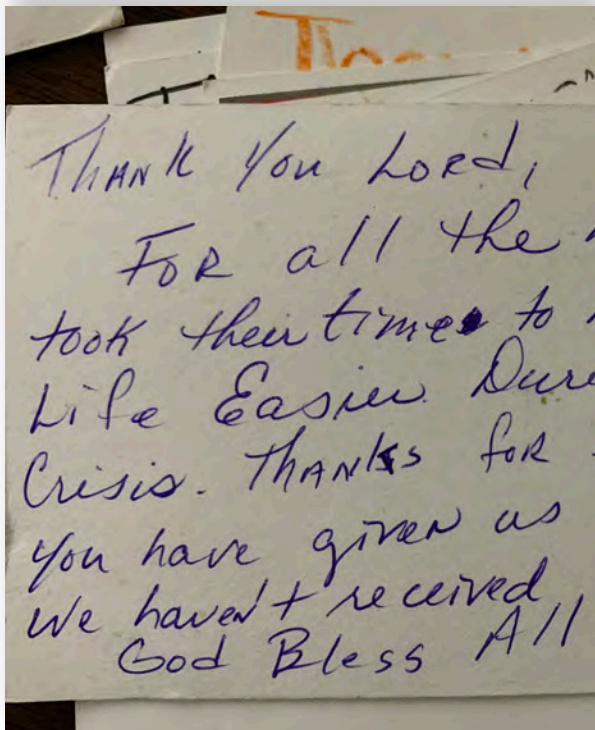 Thank You Lord,
For all the
took their time to
Life Easier
Crisis. Thanks for
you have given us
we haven't received
God Bless All